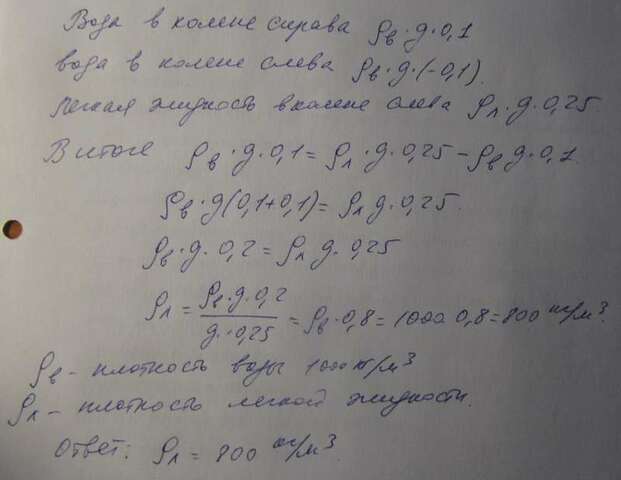 Вода в колене справа ρв·g·0,1
вода в колене слева ρв·g·(-0,1).
Легкая жидкость в колене слева ρл·g·0,25.
В итоге ρв·g·0,1 = ρл·g·0,25 - ρв g·0,1.
ρв·g(0,1+0,1) = ρл g·0,25.
ρв·g·0,2 = ρл g·0,25
ρл = ρв·g·0,2 / g·0,25 = ρв·0,8 = 1000 0,8 = 800 кг/м³.
ρв - плотность воды 1000 кг/м³
ρл - плотность легкой жидкости.
Ответ: ρл = 800 кг/м³.